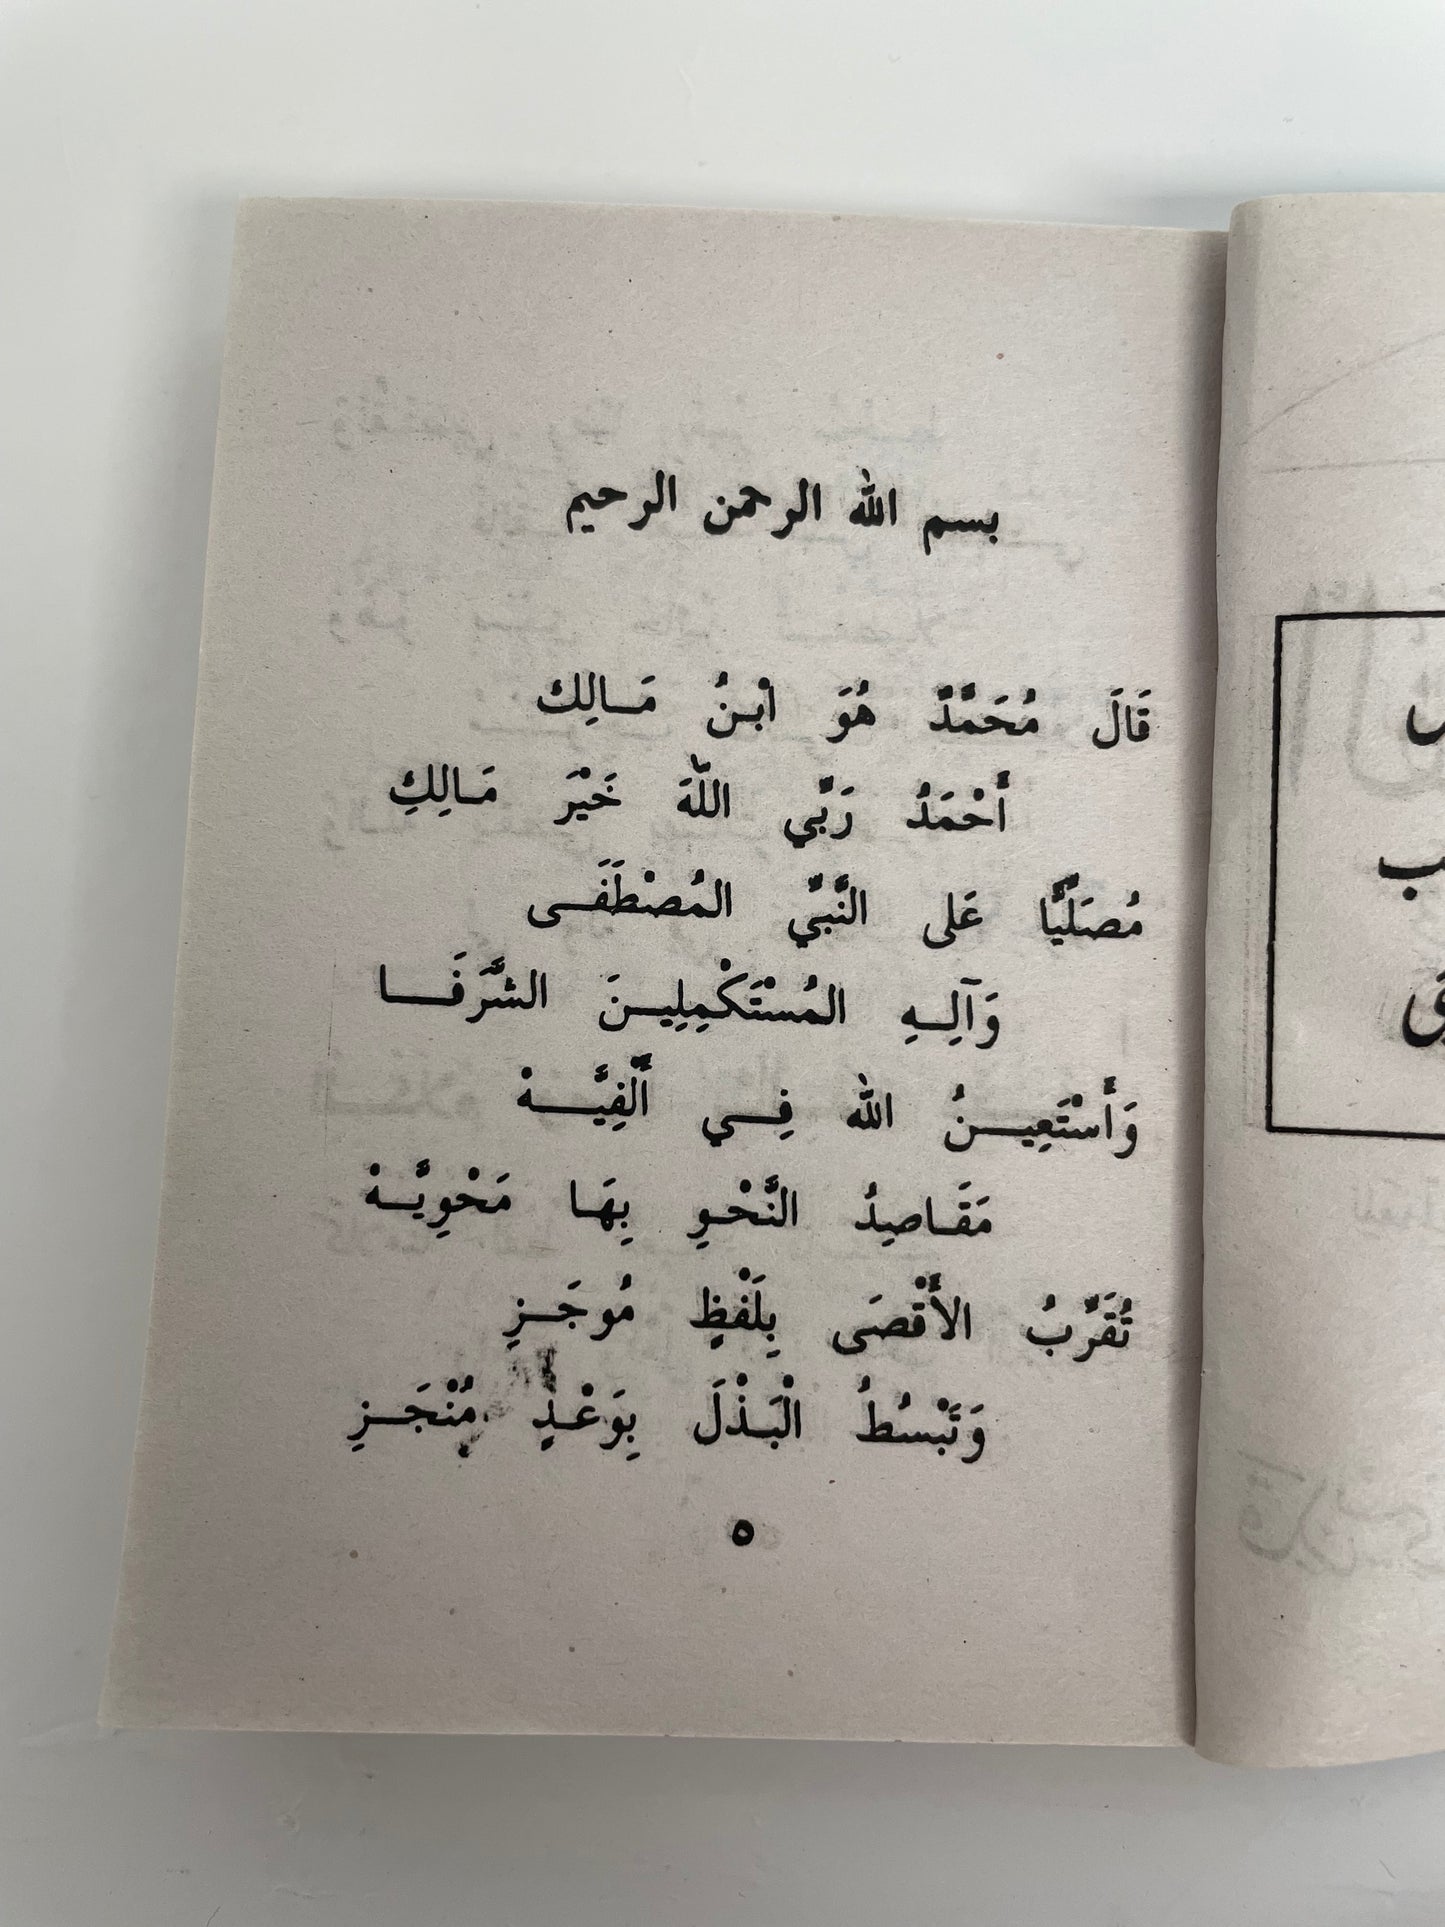 بسم الله الرحمن الرحيم
قَالَ مُحَمَّدٌ هُوَ ابْنُ مَالِك
أَحْمَدُ رَبِّي اللَّهَ خَيْرَ مَالِكِ
مُصَلِّيًا عَلى النَّبِيِّ المُصْطَفَى
وَآلِهِ المُسْتَكْمِلِينَ الشَّرَفَا
وَأَسْتَعِينُ الله فِي أَلْفِيَّهْ
مَقَاصِدُ النَّحْوِ بِهَا مَحْوِيَّهْ
تُقَرِّبُ الأَقْصَى بِلَفْظٍ مُوجَزِ
وَتَبْسُطُ الْبَذْلَ بِوَعْدٍ مُنْجَزِ
٥